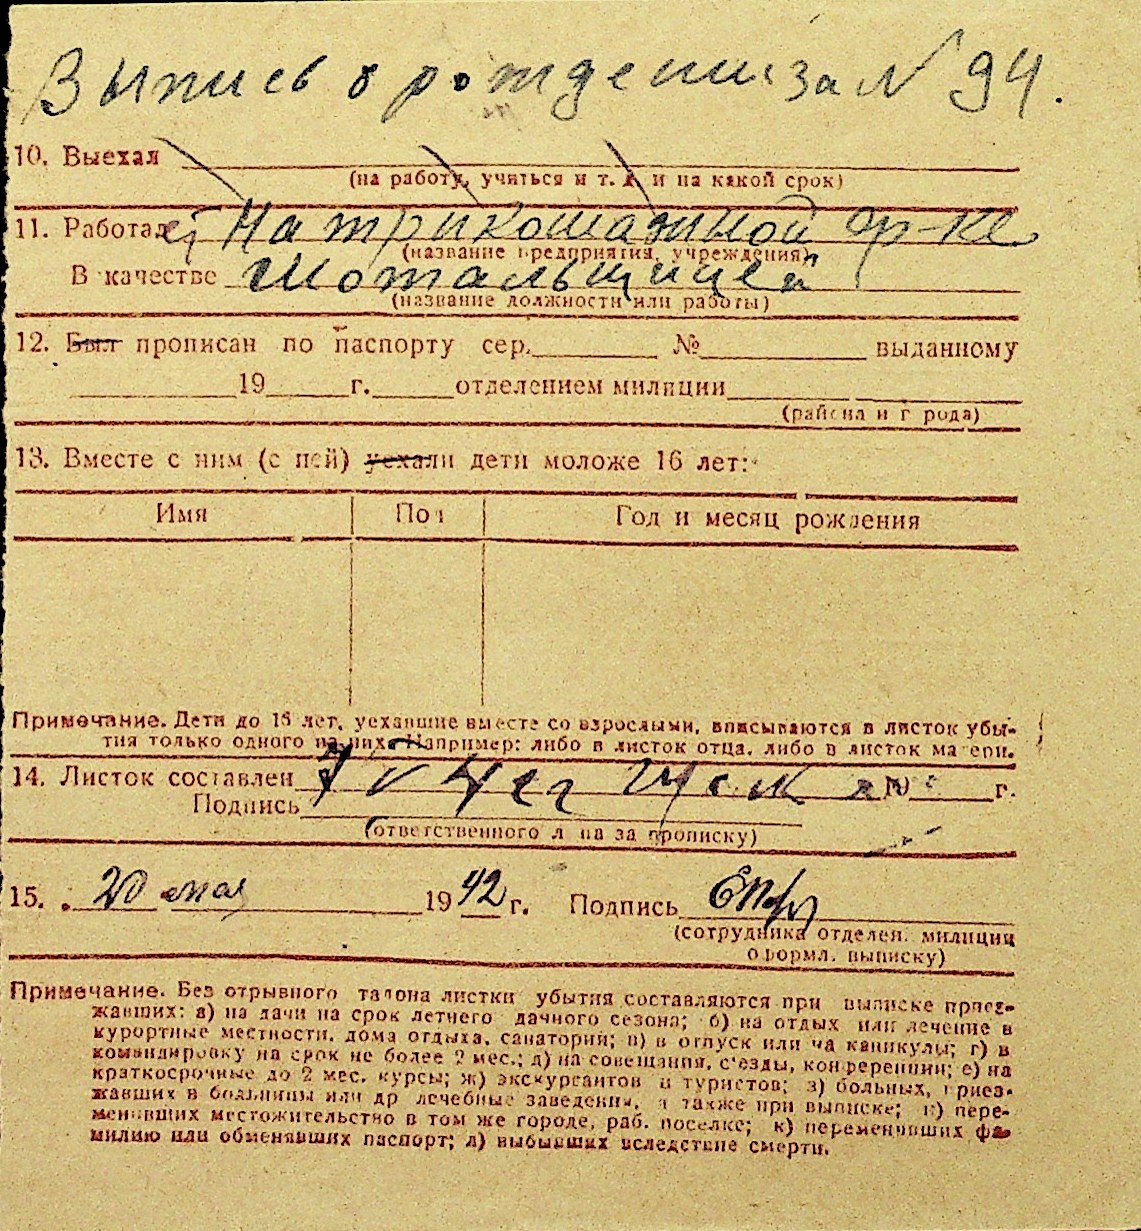 Выпись о рождении за N 94.
10. Выехал
(на работу, учиться и т. д. и на какой срок)
11. Работает На трикотажной ф-ке
(название предприятия, учреждения)
В качестве Мотальщицей
(название должности или работы)
12. Был прописан по паспорту сер. № выданному
19 г. отделением милиции
(района и города)
13. Вместе с ним (с ней) уехали дети моложе 16 лет:
Имя Пол Год и месяц рождения
Примечание. Дети до 16 лет, уехавшие вместе со взрослыми, вписываются в листок убы-
тия только одного из них. Например: либо в листок отца, либо в листок матери.
14. Листок составлен г.
Подпись
(ответственного лица за прописку)
15. 20 мая 1942 г. Подпись
(сотрудника отделен. милиции
оформл. выписку)
Примечание. Без отрывного талона листки убытия составляются при выписке приез-
жавших: а) на дачи на срок летнего дачного сезона; б) на отдых или лечение в
курортные местности, дома отдыха, санатории; в) в отпуск или на каникулы; г) в
командировку на срок не более 2 мес.; д) на совещания, съезды, конференции; е) на
краткосрочные до 2 мес. курсы; ж) экскурсантов и туристов; з) больных, приез-
жавших в больницы или др лечебные заведения, а также при выписке; и) пере-
менивших местожительство в том же городе, раб. поселке; к) переменивших фа-
милию или обменявших паспорт; л) выбывших вследствие смерти.